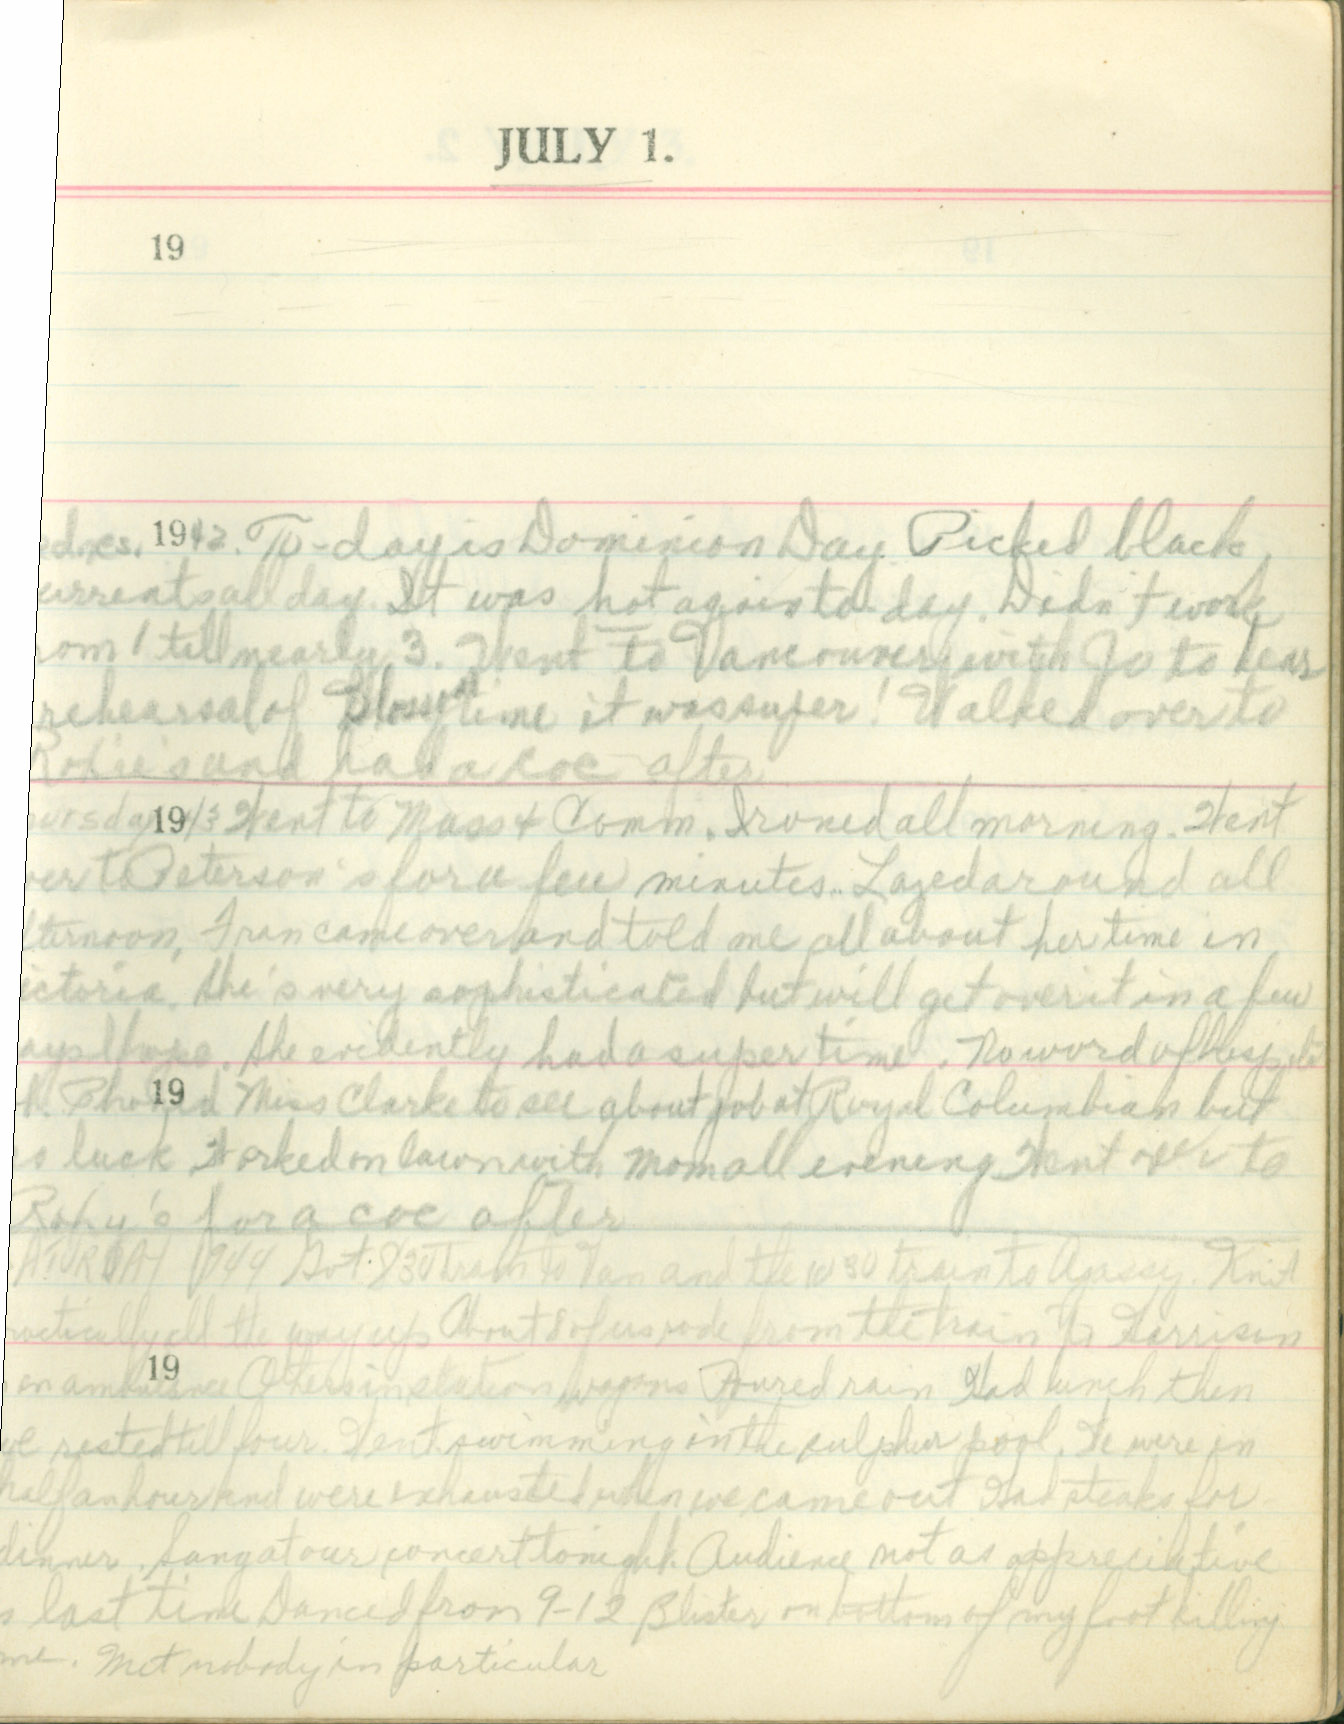 JULY 1.
19
ednes. 1942. To-day is Dominion Day. Picked black
currents all day. It was hot again to-day. Didn't work
rom 1 till nearly 3. Went to Vancouver with Jo to hear
rehearsal of Blossom time it was super! Walked over to
and had a coc after
ursday 1943 Went to Mass & Comm. Ironed all morning. Went
ver to Peterson's for a few minutes.. Lazed around all
fternoon, Fran came over and told me all about her time in
ictoria. She's very sophisticated but will get over it in a few
ays I hope. She evidently had a super time. No word of
19
Phoned Miss Clarke to see about job at Royal Columbian but
o luck Worked on lawn with Mom all evening Went over to
for a coc after
ATURDAY 1944 Got 830 tram to Van and the 10 30 train to Agassy. Knit
ractically all the way up About 8 of us rode from the train to Harrison
19
in ambulance Others in station wagons Poured rain Had lunch then
we rested till four. Went swimming in the sulphur pool. We were in
half an hour and were exhausted when we came out Had steaks for
dinner. Sang at our concert tonight. Audience not as appreciative
s last time Danced from 9-12 Blister on bottom of my foot killing
me. Met nobody in particular